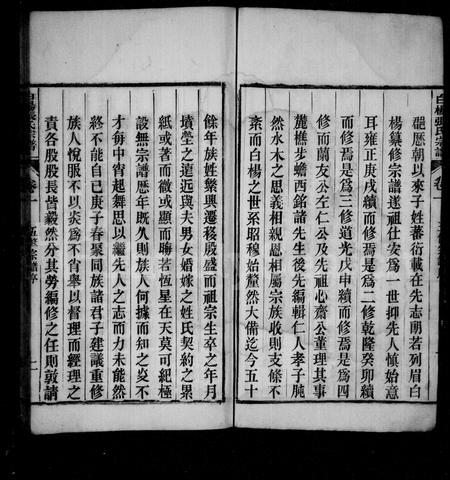 白楊張氏宗譜
卷一
歷朝以來子姓蕃衍載在先志朗若列眉白
楊纂修宗譜遂祖仕安為一世抑先人慎始意
耳雍正庚戌續而修焉是為二修乾隆癸卯續
而修焉是為三修道光戊申續而修焉是為四
修而蘭友公左仁公及先祖心齋公董理其事
麓樵步蟾西銘諸先生後先編輯仁人孝子肫
然水木之思義相親恩相洽屬宗族收則支條不
紊而白楊之世系昭穆始釐然大備迄今五十
餘年族姓繁興遷移殷盛而祖宗生卒之年月
墳塋之遠近與夫男女婚嫁之姓氏契約之累
紙或著而微或顯而晦若恆星在天莫可紀極
設無宗譜歷年既久則族人何據而知之炎不
才每中宵起舞思以繼先人之志而力未能然
終不能自已庚子春聚同族諸君子建議重修
族人悅服不以炎為不肖舉以督理而經理之
責各股股長皆毅然分其勞編修之任則敦請
白楊張氏宗譜
卷一
五修宗譜序
二